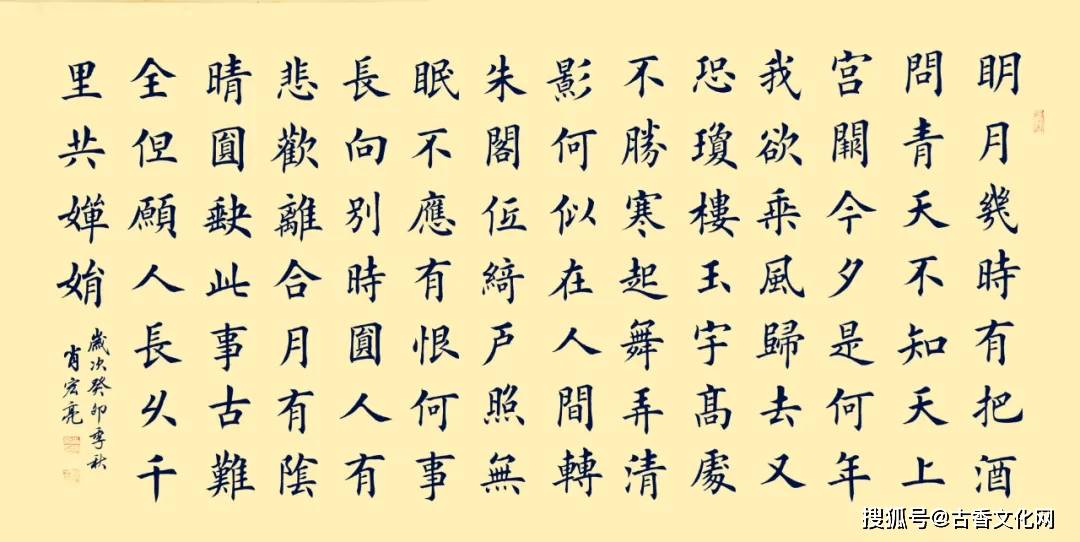 明月幾時有把酒
問青天不知天上
宫闕今夕是何年
我欲乘風歸去又
恐瓊樓玉宇高處
不勝寒起舞弄清
影何似在人間轉
朱閣低綺戶照無
眠不應有恨何事
長向別時圓人有
悲歡離合月有陰
晴圓缺此事古難
全但願人長久千
里共嬋娟
歲次癸卯季秋
肖宏亮
搜狐号@古香文化网